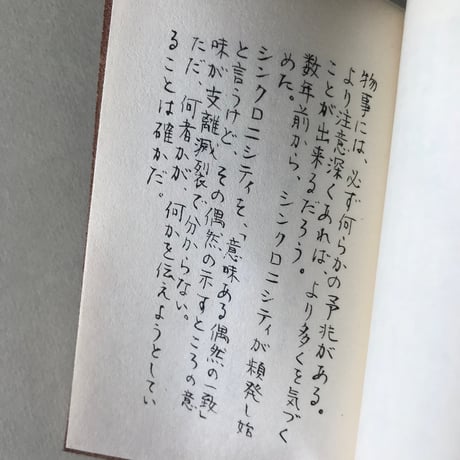 物事には、必ず何らかの予兆がある。
より注意深くあれば、より多くを気づく
ことが出来るだろう。
数年前から、シンクロニシティが頻発し始
めた。
シンクロニシティを、「意味ある偶然の一致」
と言うけど、その偶然の示すところの意
味が支離滅裂で分からない。
ただ、何者かが、何かを伝えようとしてい
ることは確かだ。